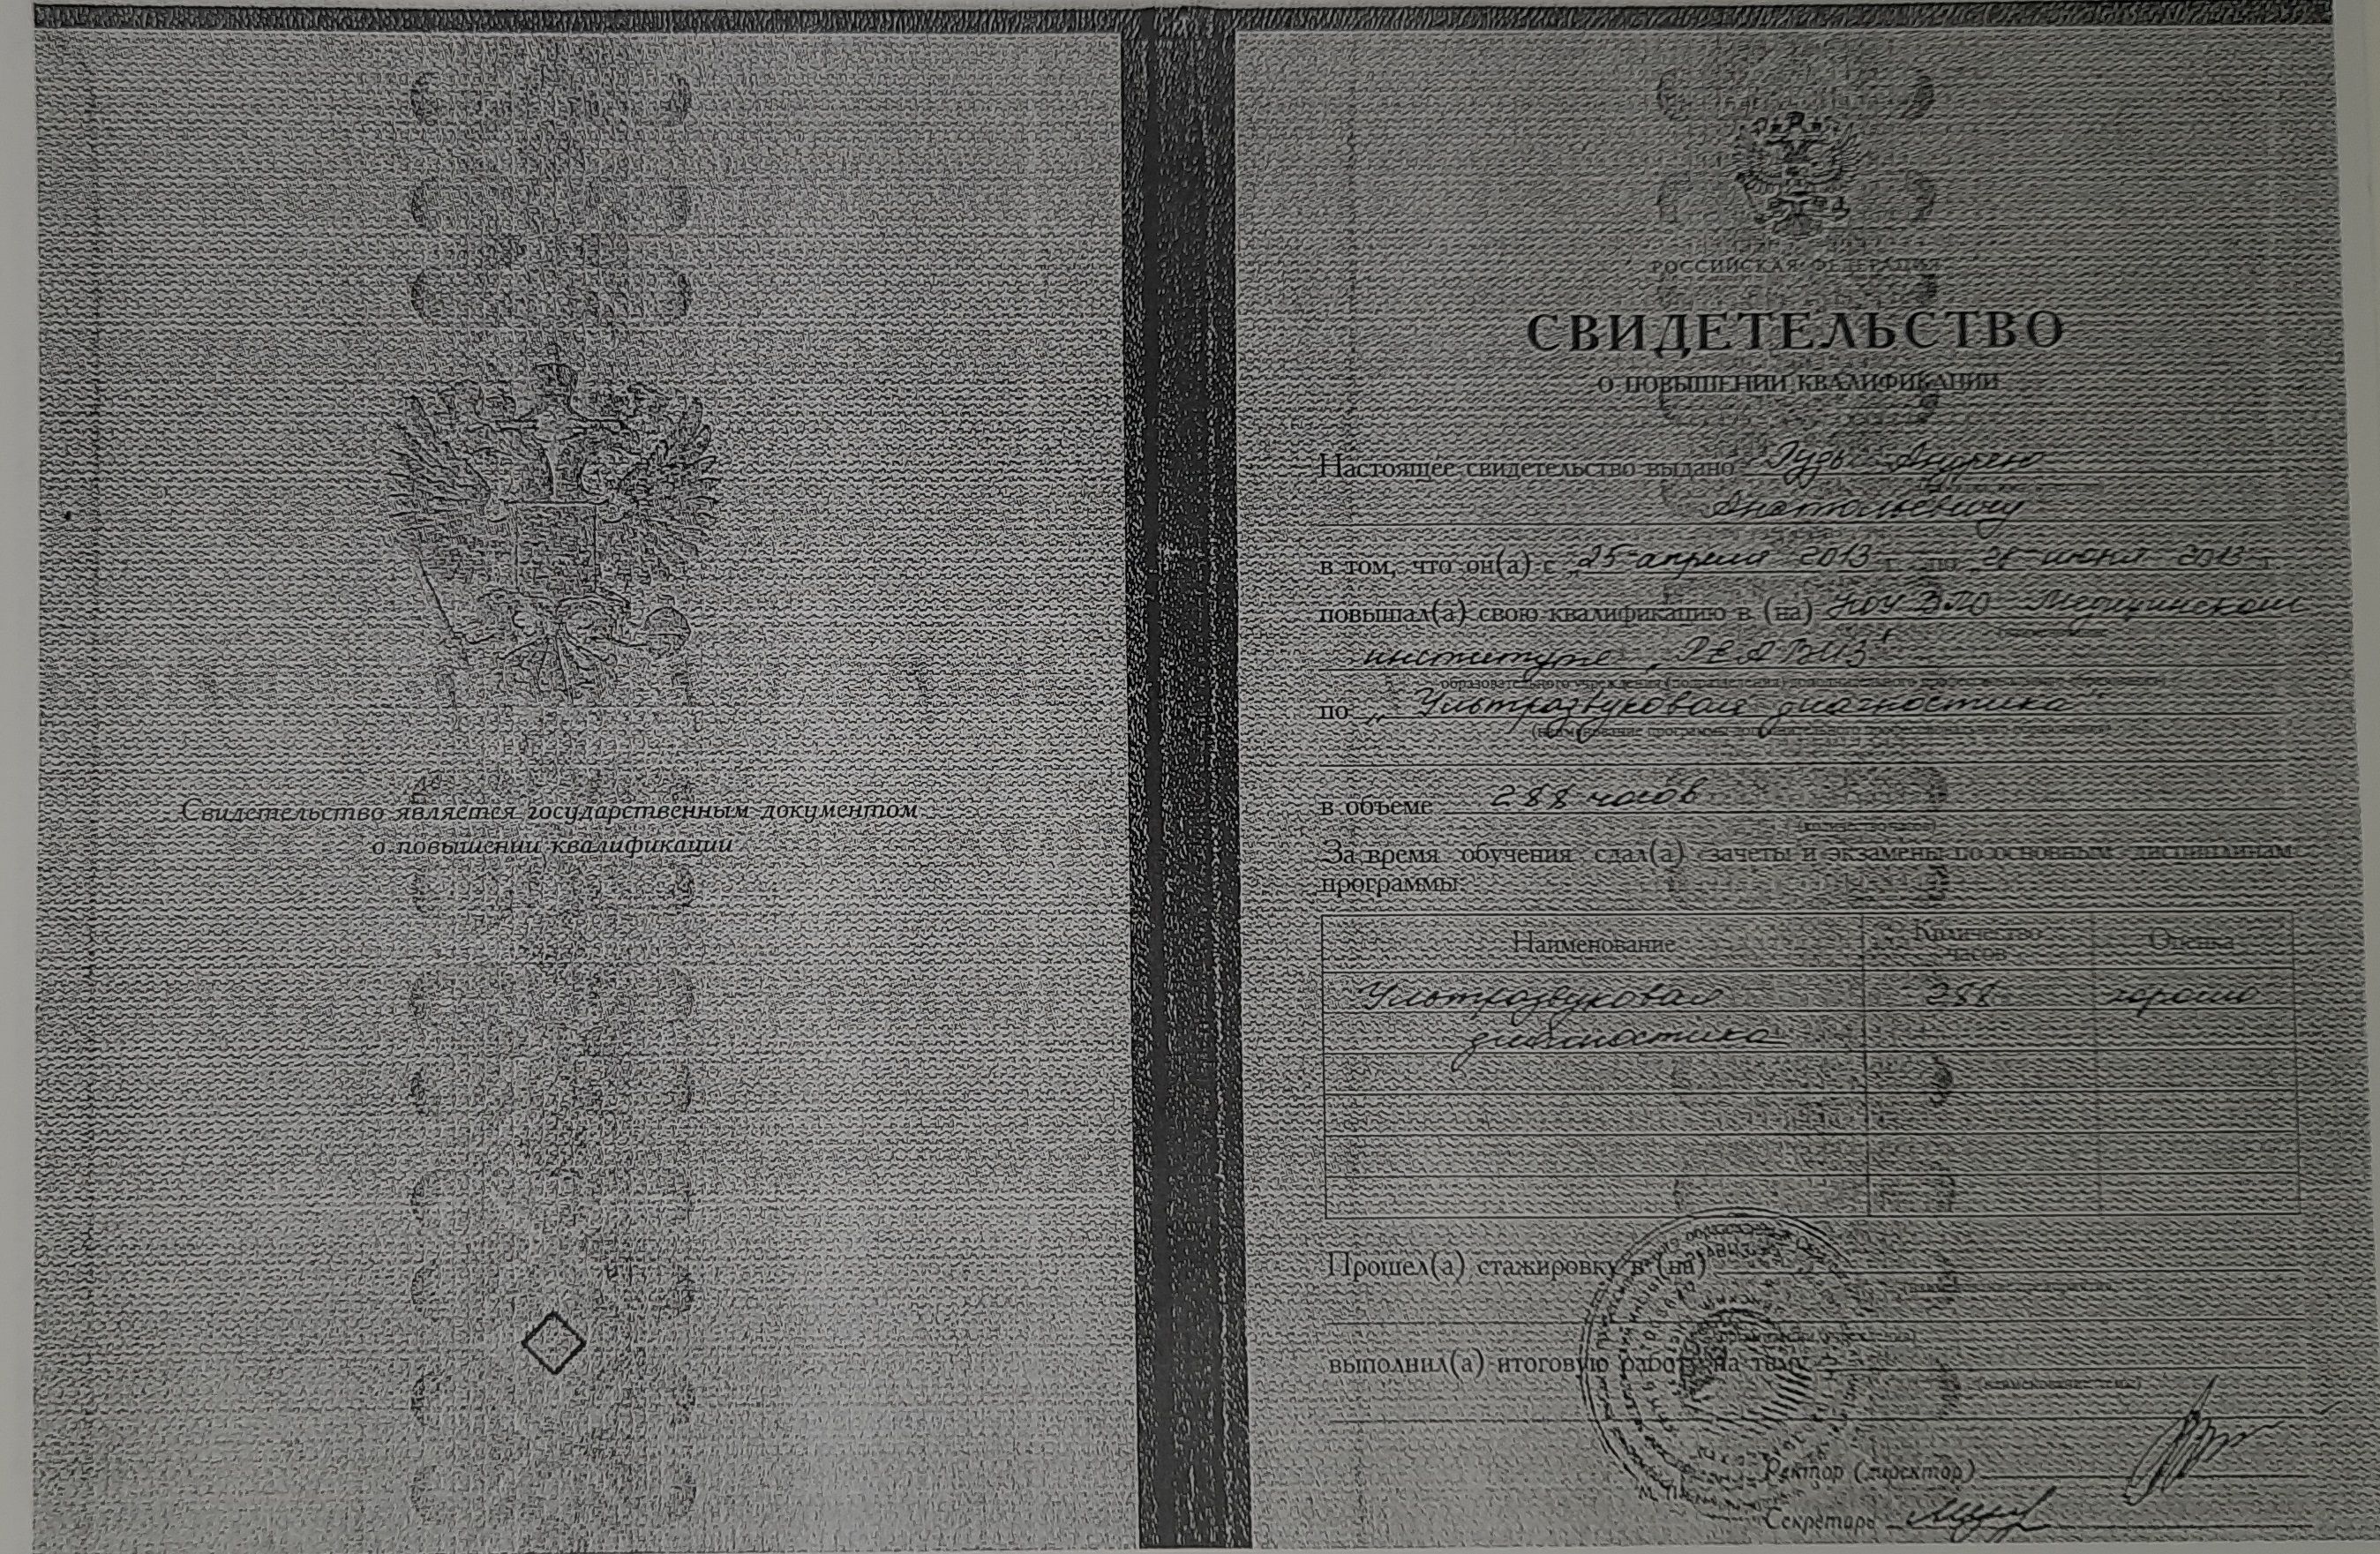 Свидетельство является государственным документом
о повышении квалификации
РОССИЙСКАЯ ФЕДЕРАЦИЯ
СВИДЕТЕЛЬСТВО
О ПОВЫШЕНИИ КВАЛИФИКАЦИИ
Настоящее свидетельство выдано Гудь Андрею
Анатольевичу
в том, что он(а) с „25" апреля 2013 г. по 28 июня 2013 г.
повышал(а) свою квалификацию в (на) НОУ ВПО Медицинском
институте „РЕАВИЗ"
образовательного учреждения
по „Ультразвуковая диагностика"
(наименование программы дополнительного профессионального образования)
в объеме 288 часов
За время обучения сдал(а) зачеты и экзамены по основным дисциплинам
программы:
Наименование Количество часов Оценка
Ультразвуковая 288 хорошо
диагностика
Прошел(а) стажировку в (на)
выполнил(а) итоговую работу на тему
Ректор (директор)
М. П.
Секретарь